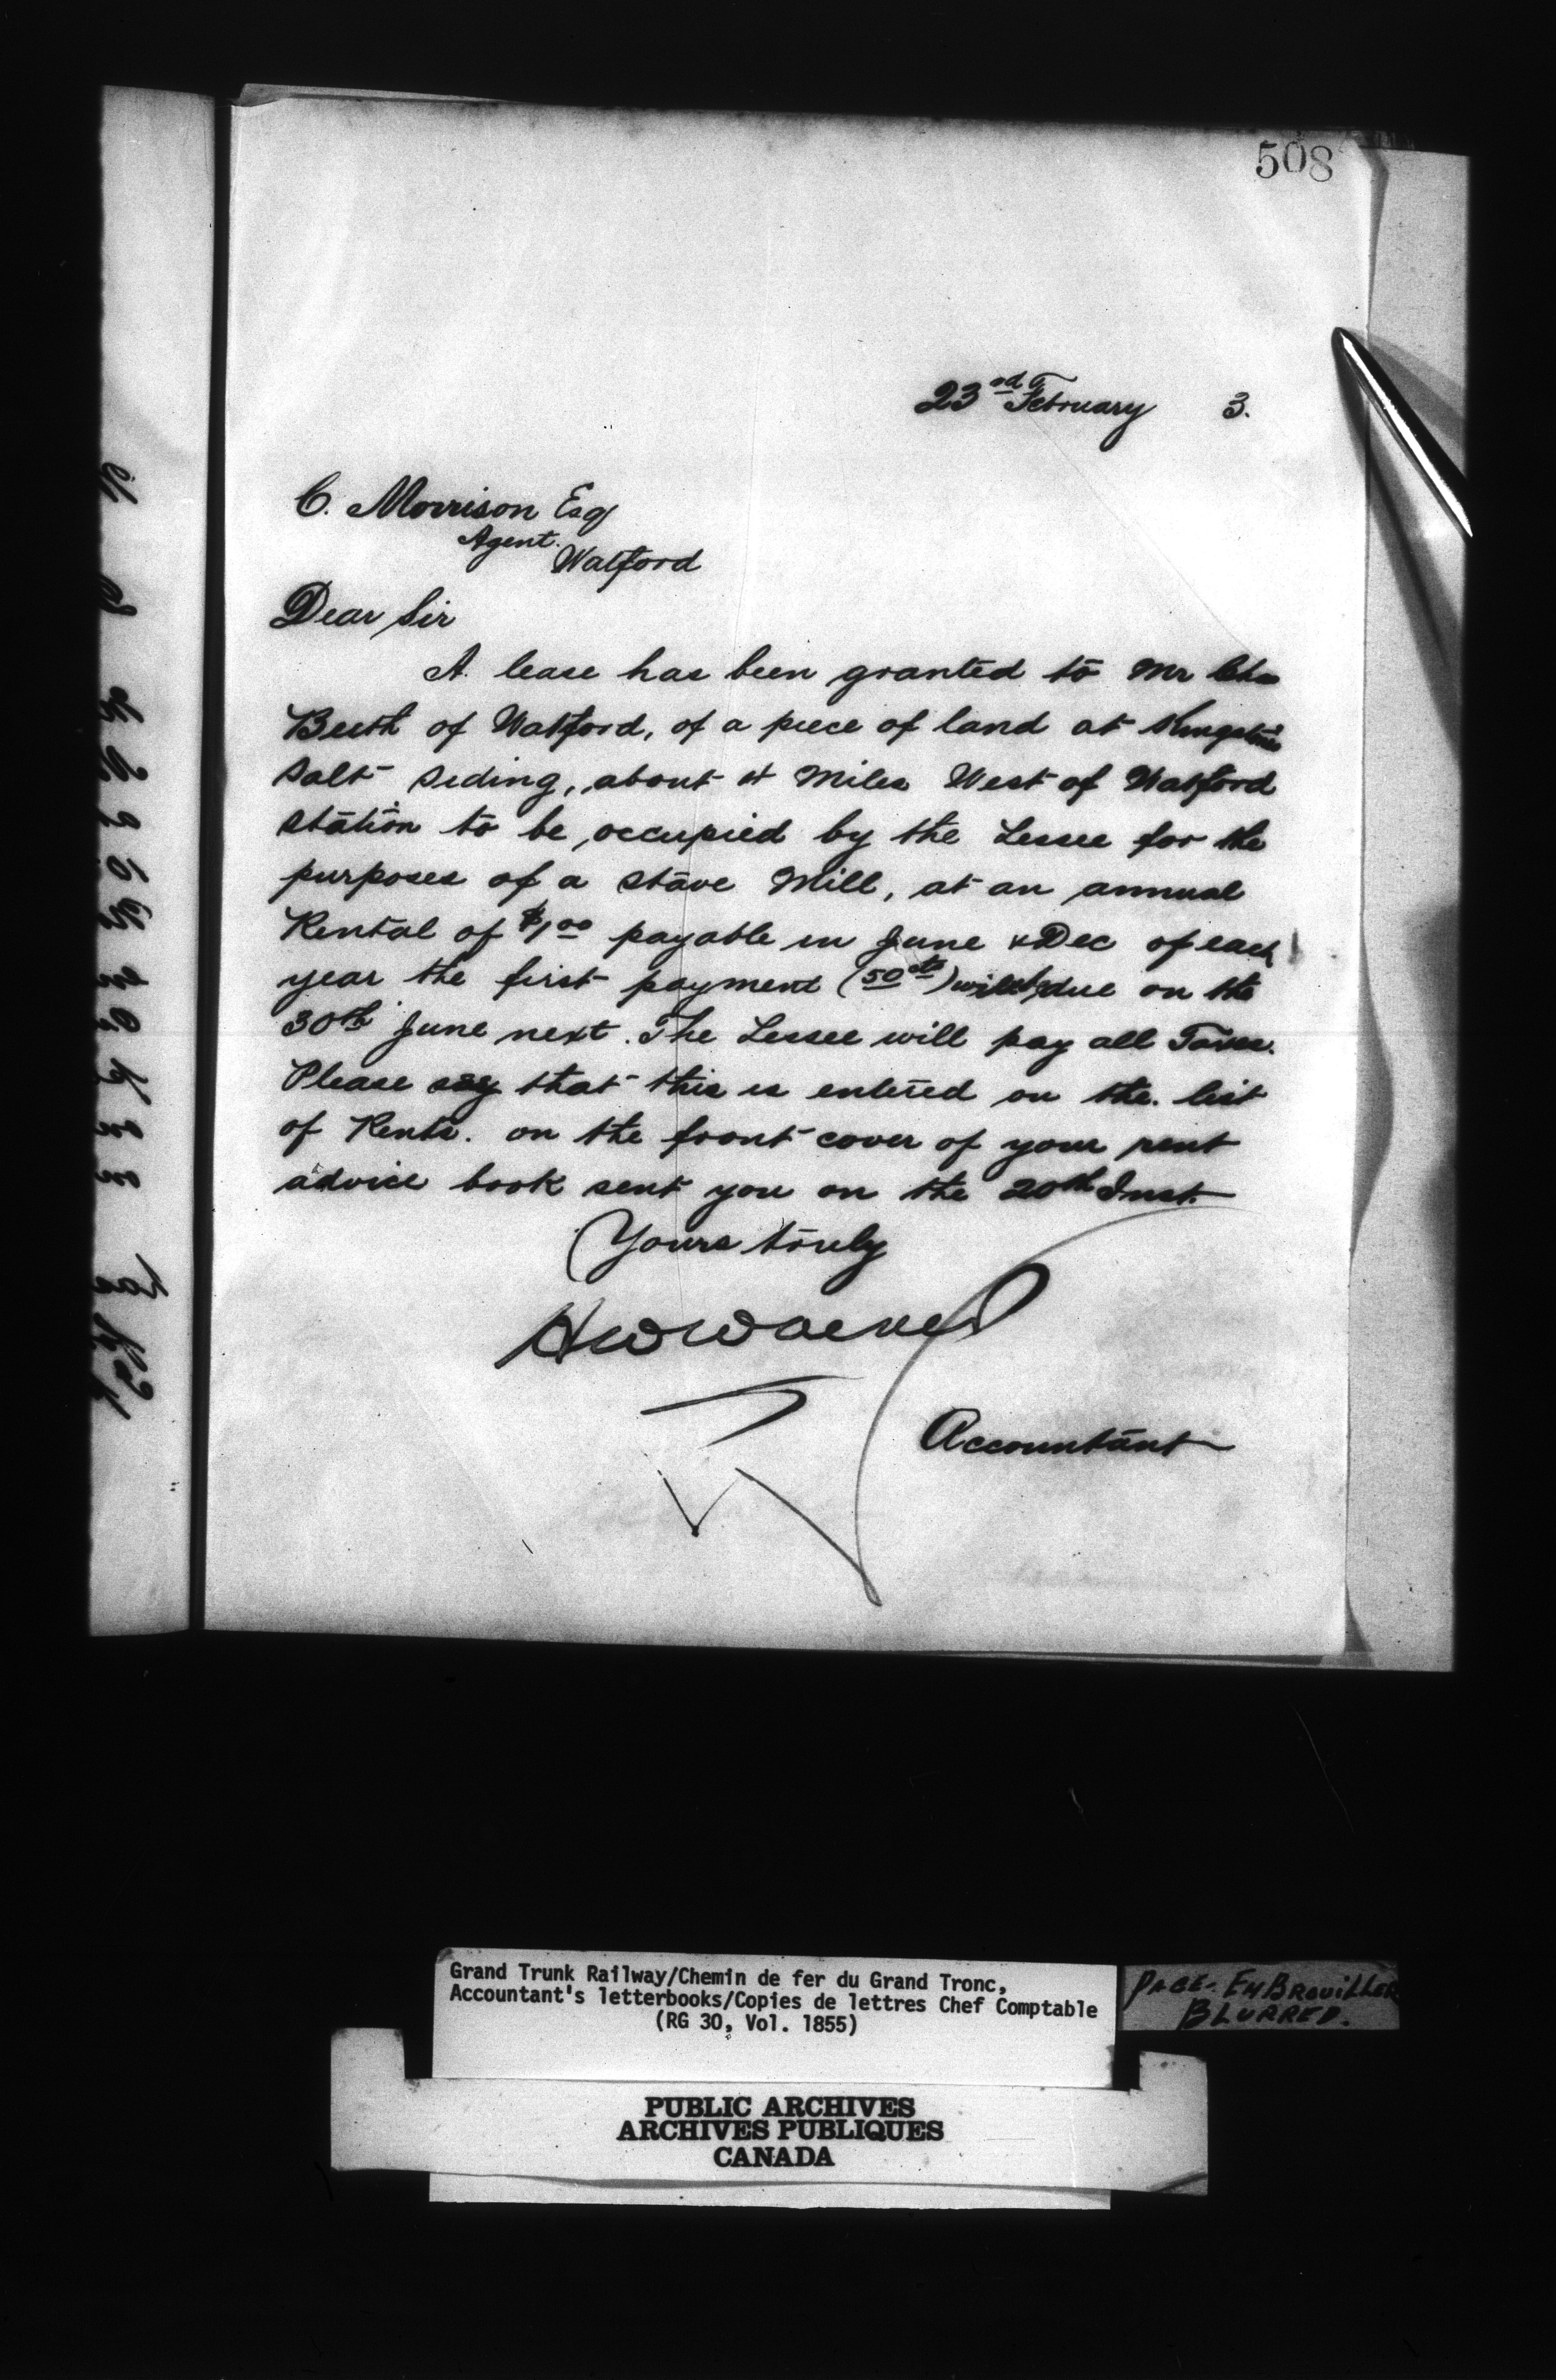 508
23rd February 3.
C. Morrison Esq
Agent.
Watford
Dear Sir
A. lease has been granted to Mr Chas
of Watford, of a piece of land at
Salt Siding, about 4 Miles West of Watford
station to be occupied by the Lessee for the
purposes of a Stave Mill, at an annual
Rental of $1.00 payable in June & Dec of each
year the first payment (50cts) will be due on the
30th June next. The Lessee will pay all Taxes.
Please say that this is entered on the list
of Rents. on the front cover of your rent
advice book sent you on the 20th Inst.
Yours truly
HW Walker
Accountant
Grand Trunk Railway/Chemin de fer du Grand Tronc,
Accountant's letterbooks/Copies de lettres Chef Comptable
(RG 30, Vol. 1855)
PAGE- EMBROUILLER
BLURRED.
PUBLIC ARCHIVES
ARCHIVES PUBLIQUES
CANADA